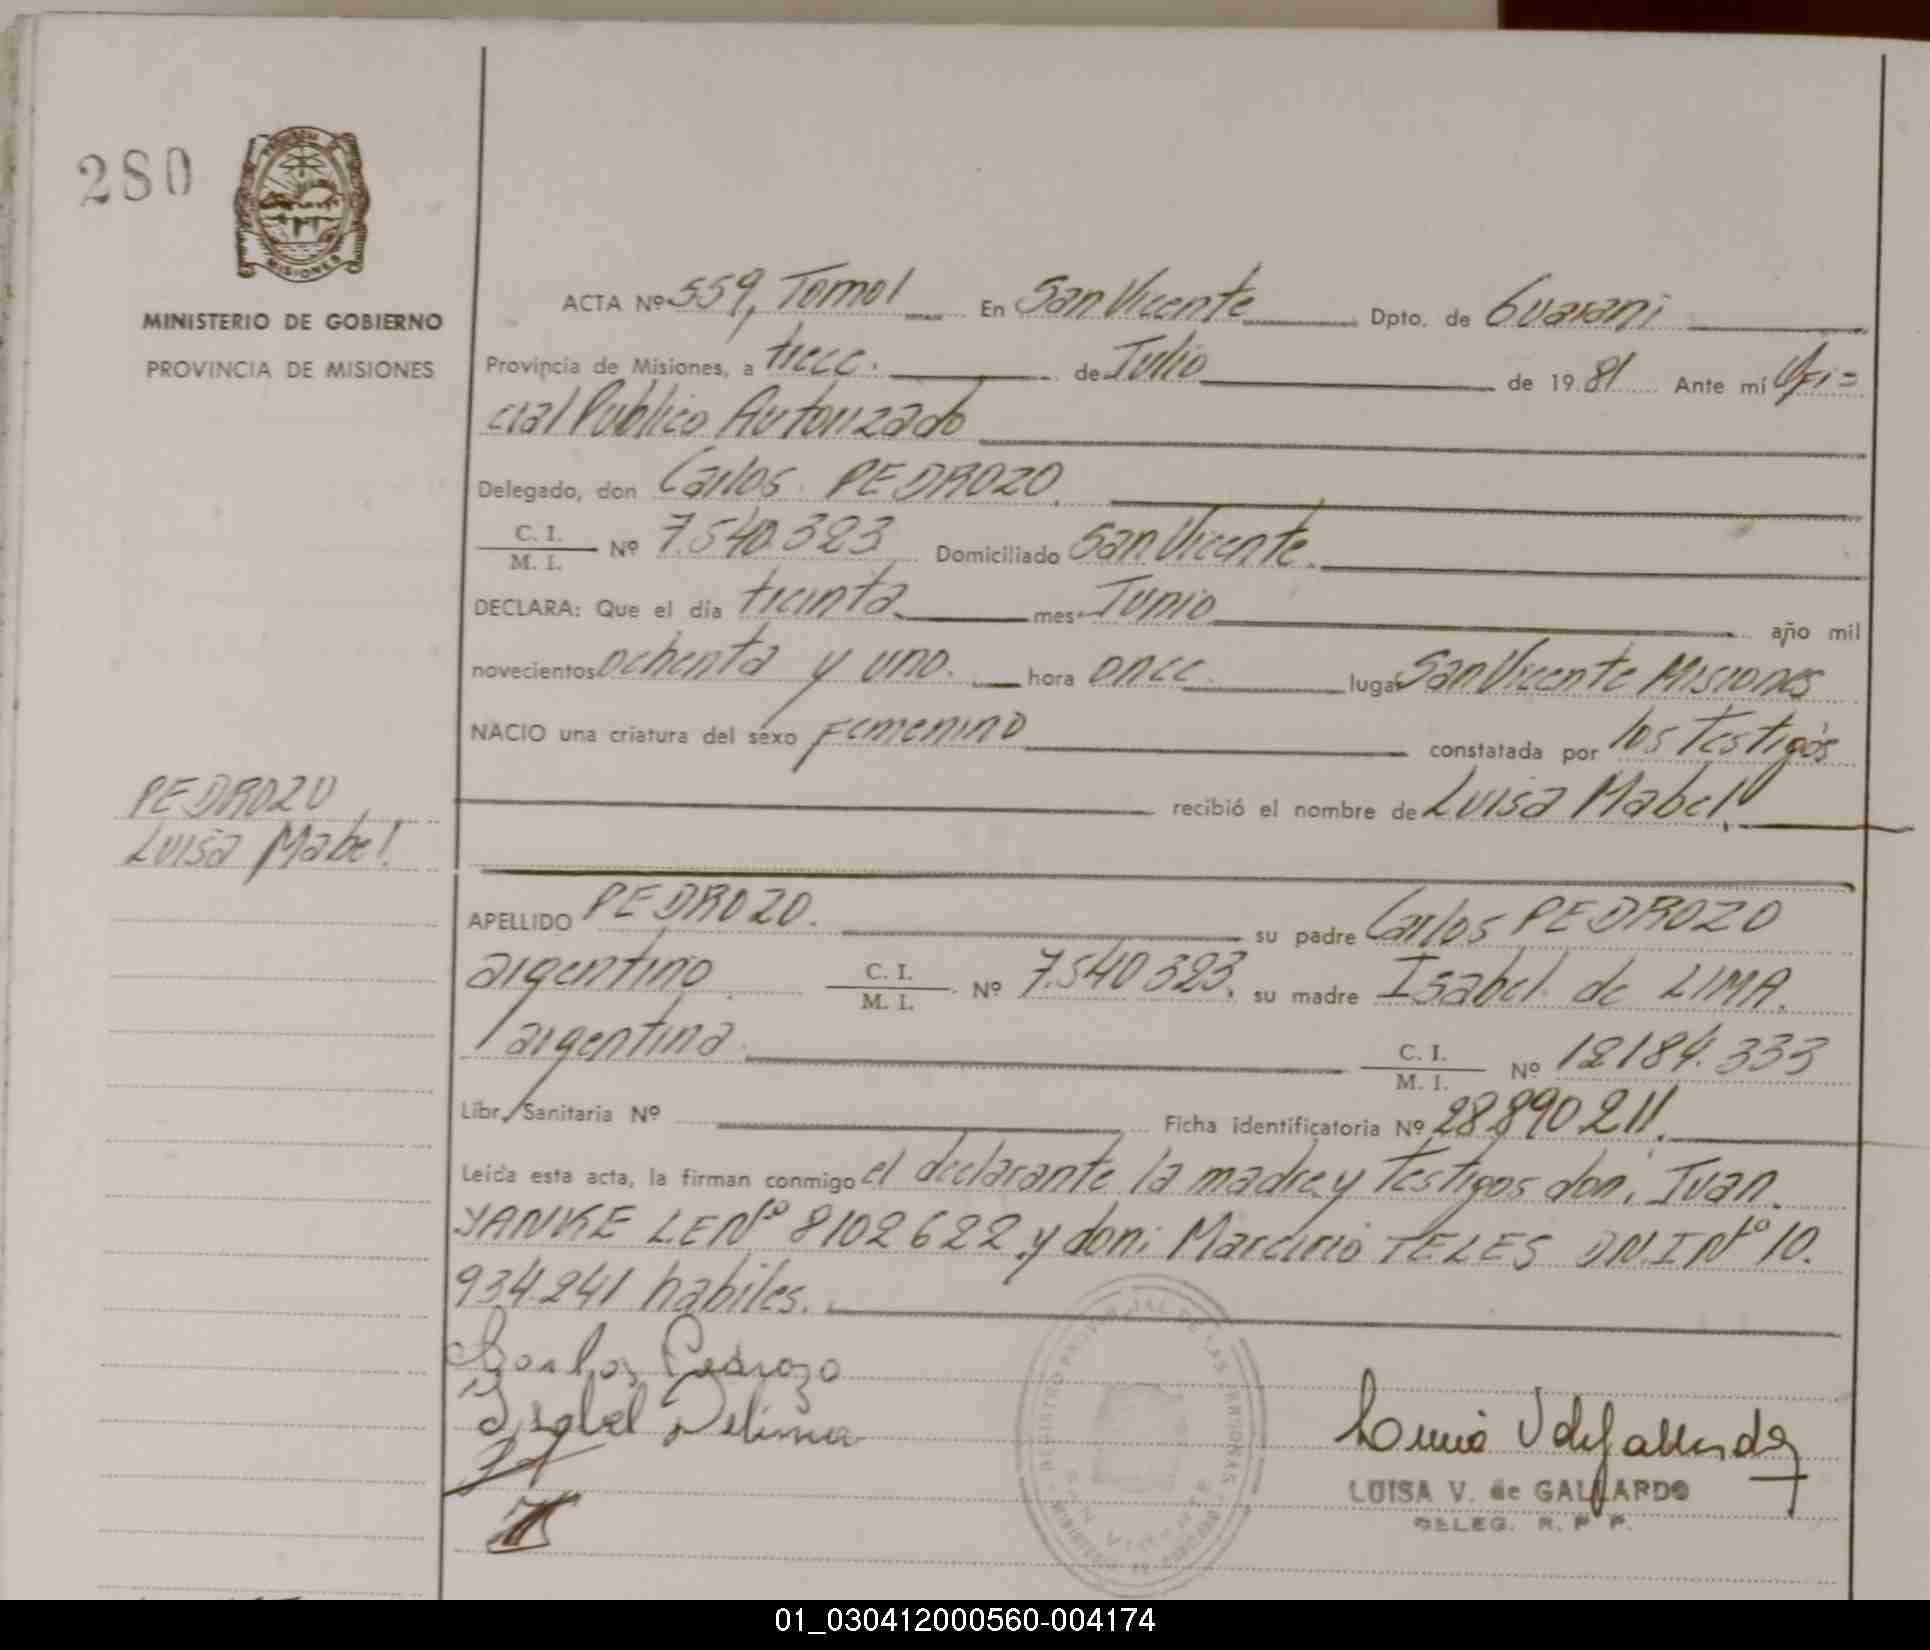 280
MISIONES
MINISTERIO DE GOBIERNO
PROVINCIA DE MISIONES
ACTA Nº 559, Tomo I En San Vicente Dpto. de Guarani
Provincia de Misiones, a trece. de Julio de 19 81 Ante mí Ofi=
cial Publico Autorizado
Delegado, don Carlos PEDROZO.
C. I.
M. I. Nº 7.540.323 Domiciliado San Vicente.
DECLARA: Que el día treinta mes Junio año mil
novecientos ochenta y uno. hora once. lugar San Vicente Misiones
NACIO una criatura del sexo Femenino constatada por los Testigos
PEDROZO
Luisa Mabel.
recibió el nombre de Luisa Mabel.
APELLIDO PEDROZO. su padre Carlos PEDROZO
argentino C. I.
M. I. Nº 7.540 323, su madre Isabel de LIMA.
argentina C. I.
M. I. Nº 12184.333
Libr. Sanitaria Nº Ficha identificatoria Nº 28890211.
Leída esta acta, la firman conmigo el declarante la madre y Testigos don: Juan
YANKE LE Nº 8102622 y don: Marcirio TELES DN.I Nº 10.
934241 habiles.
Carlos Pedrozo
Isabel Delima
REGISTRO PROVINCIAL DE LAS PERSONAS
SAN VICENTE
LUISA V. de GALLARDO
DELEG. R. P. P.
01_030412000560-004174